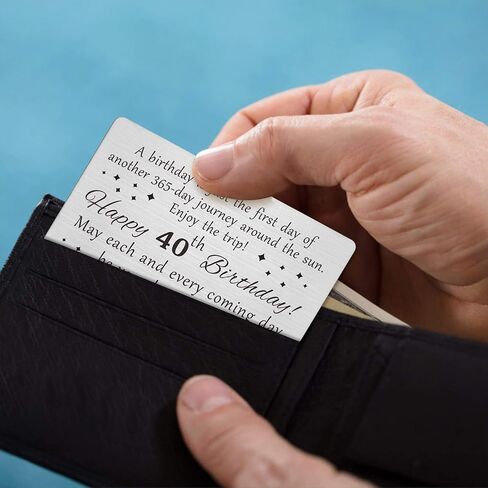 A birthday is just the first day of
another 365-day journey around the sun.
Enjoy the trip!
Happy 40th Birthday!
May each and every coming day